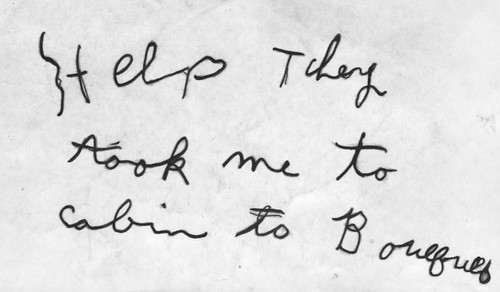 Help They
took me to
cabin to